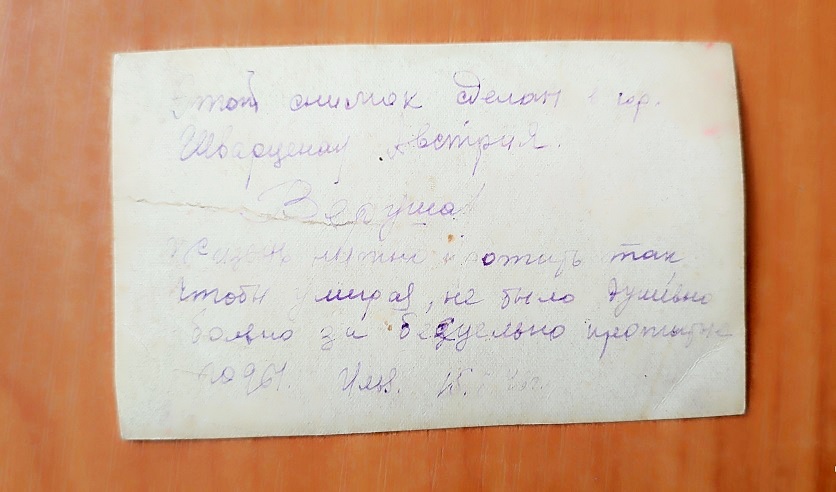 Этот снимок сделан в гор.
Шварценау Австрия.
Веруша!
Жизнь нужно прожить так
чтобы умирая, не было душевно
больно за бесцельно прожитые
годы. 15.